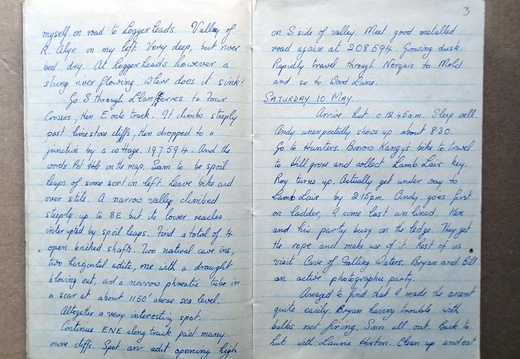 myself on road to Loggerheads. Valley of
R. Alyn on my left. Very deep, but river
bed dry. At Loggerheads however a
strong river flowing. Where does it sink?
Go S through Llanferres to Four
Crosses, then E onto track. It climbs steeply
past limestone cliffs, then dropped to a
junction by a cottage, 197594. And the
words Pot Hole on the map. Seem to be spoil
heaps of some sort on left. Leave bike and
over stile. A narrow valley climbed
steeply up to SE but its lower reaches
interrupted by spoil heaps. Found a total of 4
open bricked shafts. Two natural cave ins,
two horizontal adits, one with a draught
blowing out, and a narrow phreatic tube in
a scar at about 1150' above sea level.
Altogether a very interesting spot.
Continue ENE along track past many
more cliffs. Spot an adit opening high
3
on S side of valley. Meet good metalled
road again at 208594. Growing dusk.
Rapidly travel through Nerquis to Mold
and so to Wood Lane.
SATURDAY 10 MAY.
Arrive hut c 12.45am. Sleep well.
Andy unexpectedly shows up about 8.30.
Go to Hunters. Borrow Kangy's bike to travel
to Hillgrove and collect Lamb Lair key.
Roy turns up. Actually get under way to
Lamb Lair by 2.15pm. Andy goes first
on ladder, I come last on lined. Ken
and his party busy on the ledge. They get
the rope and make use of it. Rest of us
visit Cave of Falling Waters. Bryan and Bill
an active photographic party.
Amazed to find that I made the ascent
quite easily. Bryan having trouble with
bulbs not firing. Soon all out. Back to
hut with Laurie Horton. Clean up and eat